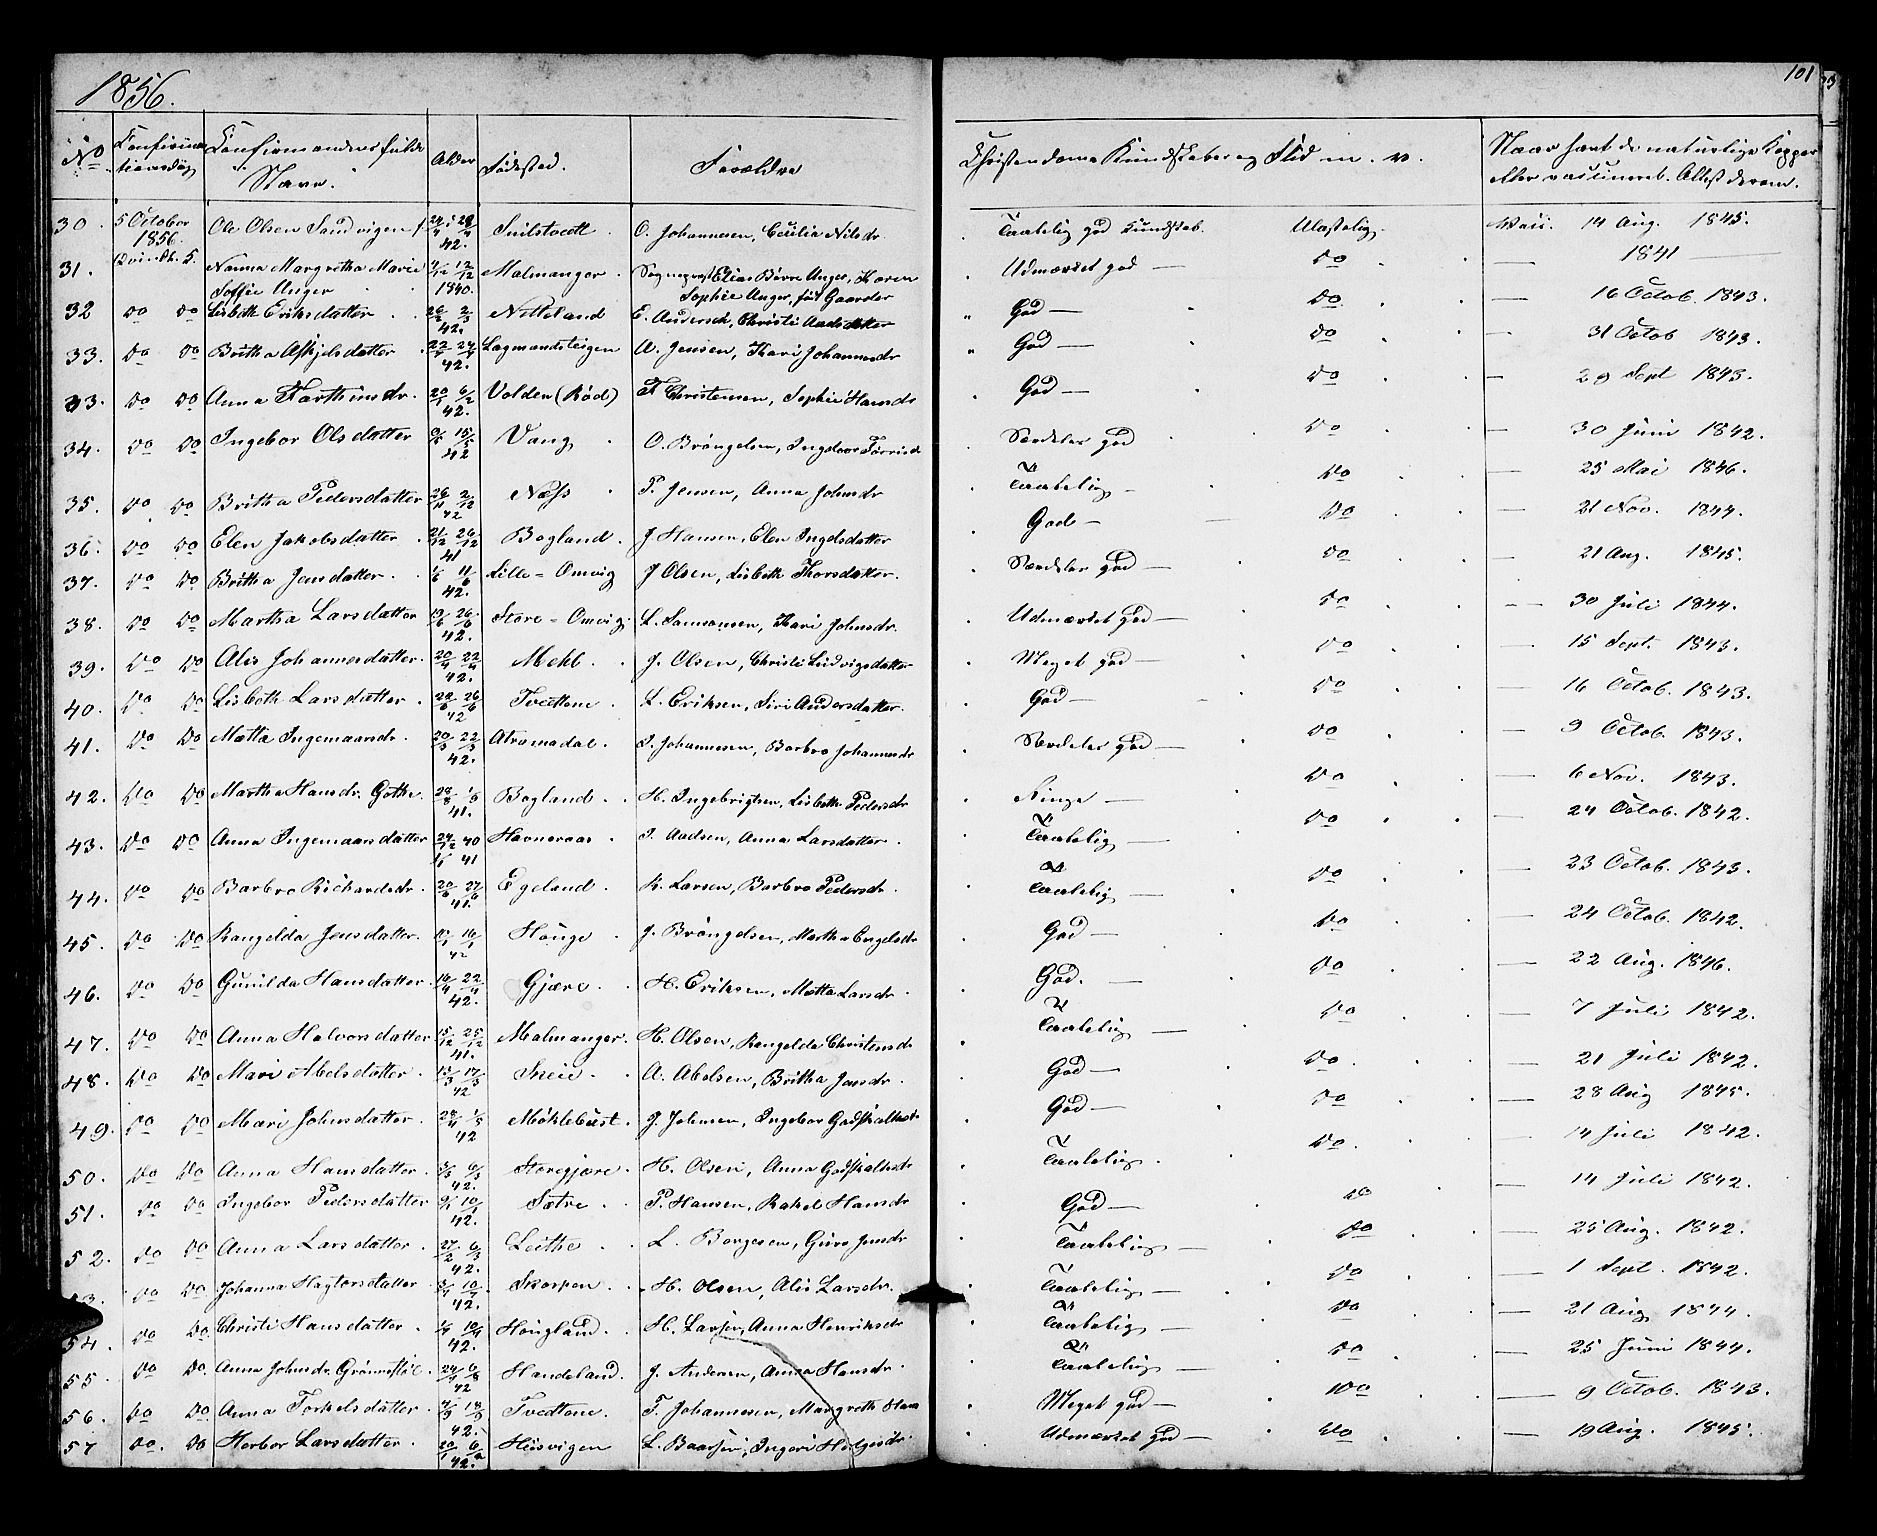 1856.
101
No
Confirma-
tionsdag
Confirmandens fulde
Navn.
Alder
Fødested.
Forældre
Christendoms Kundskaber og Flid m. v.
Naar havt de naturlige Kopper
eller vaccineret. Attest derom.
30. 5 October 1856. Ole Olsen Sandvigen 42. Snilstvedt O. Johannesen, Cecilia Nilsdr. Taalelig god Kundskab. Ulastelig. Vacc. 14 Aug. 1845.
31. Qvindk. 5. Nanna Margretha Marie Soffie Unger 1840. Malmanger Sognepræst Elias Börre Unger, Karen Sophie Unger, föd Gaarder Udmærket god — do — 1841 —
32 do do Lisbeth Eriksdatter 42. Netteland E. Andersen, Christi Aadsdatter God — do — 16 Octob. 1843.
33. do do Britha Askjelsdatter 22/4 24/4 42. Lagmandsteigen A. Jensen, Kari Johannesdr God — do — 31 Octob 1843.
33. do do Anna Farthinsdr. 42. Volden (Röd) F Christensen, Sophie Hansdr God — do — 29 Sept 1843.
34. do do Ingebor Olsdatter 42 Vang O. Bröngelsen, Ingebor Særdeles god do — 30 Juni 1842.
35. do do Britha Pedersdatter 26/11 2/12 42 Næss P. Jensen, Anna Johnsdr Taalelig — do — 25 Mai 1846.
36. do do Elen Jakobsdatter 21/12 26/12 41 Bogland J Hansen, Elen Ingelsdatter God — do — 21 Nov. 1844.
37. do do Britha Jensdatter 1/6 11/6 42. Lille-Omvig J Olsen, Lisbeth Thorsdatter. Særdeles god — do — 21 Aug. 1845.
38. do do Martha Larsdatter 19/6 26/6 42. Store-Omvig L. Samsonsen, Kari Johnsdr. Udmærket god — do — 30 Juli 1844.
39. do do Alis Johannesdatter. 20/4 22/4 42. Mehl. J. Olsen, Christi Ludvigsdatter Meget god — do — 15 Sept. 1843.
40. do do Lisbeth Larsdatter 26/6 42 Tvedtene L. Eriksen, Siri Andersdatter. God — do — 16 Octob. 1843.
41. do do Matta Ingemaarsdr. 20/3 22/3 42. Axamadal. I. Johannesen, Barbro Johannesdr Særdeles god — do — 9 Octob. 1843.
42. do do Martha Hansdr. Gothe. 41. Bogland H. Ingebrigtsen, Lisbeth Pedersdr Ringe — do — 6 Nov. 1843.
43. do do Anna Ingemaarsdatter 24/12 40 41 Havneraas I. Aadsen, Anna Larsdatter Taalelig — do — 24 Octob. 1842.
44. do do Barbro Richardsdr. 41. Egeland R. Larsen, Barbro Pedersdr Taalelig do — 23 Octob. 1843.
45. do do Rangelda Jensdatter. 42 Houge J. Bröngelsen, Martha Engelsdr God — do — 24 Octob. 1842.
46. do do Gunilda Hansdatter 16/4 22/4 42. Gjære H. Eriksen, Matta Larsdr God. — do — 22 Aug. 1846.
47. do do Anna Halvorsdatter 15/12 25/12 41. Malmanger. H. Olsen, Rangelda Christensdr Taalelig — do — 7 Juli 1842.
48. do do Mari Abelsdatter 13/3 17/3 42 Sneie A. Abelsen, Britha Jonsdr God — do — 21 Juli 1842.
49. do do Mari Johnsdatter 28/4 1/5 42 Möklebust. J. Johnsen, Ingebor Godskalksdr God — do — 28 Aug 1845.
50. do do Anna Hansdatter 3/3 6/3 42. Storegjære H. Olsen, Anna Godskalksdr Taalelig do — 14 Juli 1842.
51. do do Ingebor Pedersdatter 42. Sætre P. Hansen, Rakel Hansdr God — do — 14 Juli 1842.
52. do do Anna Larsdatter 27/2 6/3 42. Leithe L. Borgesen, Guro Jensdr Taalelig — do — 25 Aug. 1842.
53. do do Johanna Hagtorsdatter 42. Skorpen H. Olsen, Alis Larsdr. Taalelig do — 1 Sept. 1842.
54. do do Christi Hansdatter 42. Hougland H. Larsen, Anna Henriksdr Taalelig — do — 21 Aug 1844.
55. do do Anna Johnsdr. Grönnstöl 42 Handeland. J. Andersen, Anna Hansdr Taalelig — do — 25 Juni 1844.
56. do do Anna Torkelsdatter 42. Tvedtene. T. Johannesen, Margreth Hans Meget god — do — 9 Octob. 1843.
57 do do Herbor Larsdatter 42. Husvigen L. Baarsen, Ingeri Helgesdr Udmærket god — do — 19 Aug. 1845.